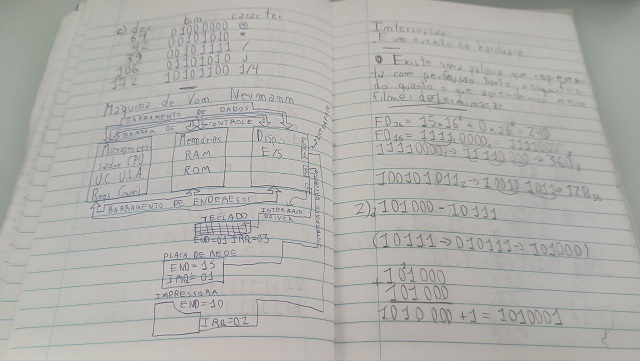 c) dec bin caracter
64 01000000 @
42 00101010 *
47 00101111 /
106 01101010 j
172 10101100 1/4
Máquina de Von Neumann
BARRAMENTO DE DADOS
BARRAM DE CONTROLE
Microproces
sador CPU
U.C U.L.A
Regs Gerais
Memórias
RAM
ROM
Disp.
E/S
BARRAMENTO DE ENDEREÇOS
TECLADO
INTERFACE
DRIVER
END=01 IRQ=03
PLACA DE REDE
END=15
IRQ=01
IMPRESSORA
END=10
IRQ=02
Interrupção
É um evento de hardware
Existe uma palavra que
com perfeição tanto
quanto o que
filme: determinação
F0₁₆ = 15×16¹ + 0×16⁰ = 240
F0₁₆ = 1111.0000₂ = 11110000
11110000₂ → 11110000 → 360₈
100101011₂ → 1 0010 1011 → 12B₁₆
2) a 101000 - 10111
(10111 → 010111 → 101000)
101000
+ 101000
1010000 + 1 = 1010001